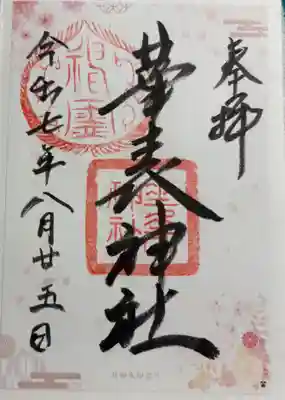 奉拝
華表神社
令和七年八月廿五日